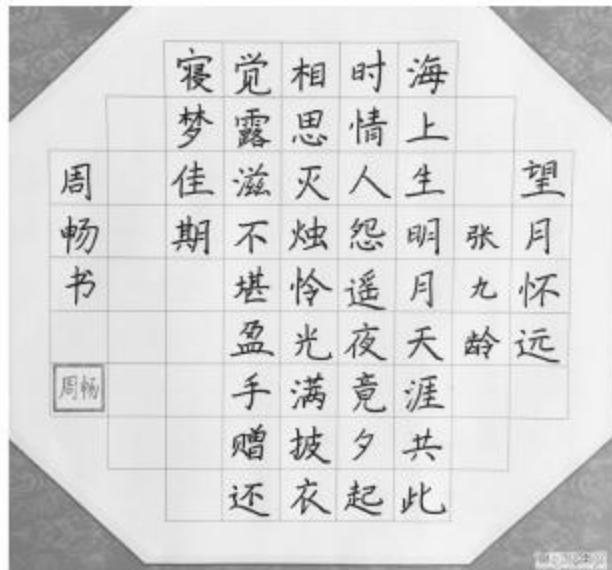 望月怀远
张九龄
海上生明月天涯共此
时情人怨遥夜竟夕起
相思灭烛怜光满披衣
觉露滋不堪盈手赠还
寝梦佳期
周畅书
周畅